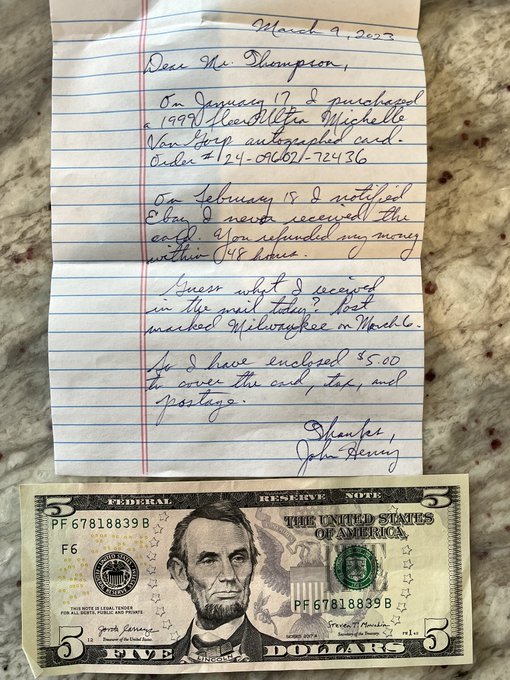 March 9, 2023
Dear Mr. Thompson,
On January 17 I purchased
a 1999 fleer Ultra Michelle
Van Gorp autographed card.
Order # 24-09602-72436
On February 18 I notified
Ebay I never received the
card. You refunded my money
within 48 hours.
Guess what I received
in the mail today? Post
marked Milwaukee on March 6.
So I have enclosed $5.00
to cover the card, tax, and
postage.
Thanks,
John Henry
5 FEDERAL RESERVE NOTE 5
PF 67818839 B
THE UNITED STATES
OF AMERICA
F6
PF 67818839 B
THIS NOTE IS LEGAL TENDER
FOR ALL DEBTS, PUBLIC AND PRIVATE
Treasurer of the United States.
SERIES 2017A
Secretary of the Treasury.
LINCOLN
5 FIVE DOLLARS 5